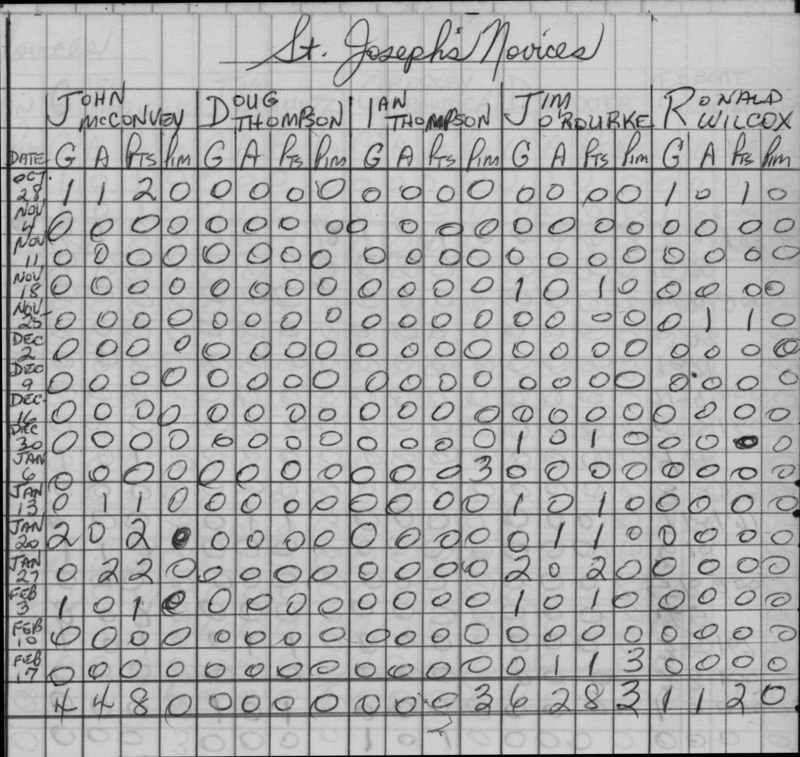 St. Joseph's Novices
JOHN McCONVEY DOUG THOMPSON IAN THOMPSON JIM O'ROURKE RONALD WILCOX
DATE G A PTS PIM G A PTS PIM G A PTS PIM G A PTS PIM G A PTS PIM
OCT 28 1 1 2 0 0 0 0 0 0 0 0 0 0 0 0 0 1 0 1 0
NOV 4 0 0 0 0 0 0 0 0 0 0 0 0 0 0 0 0 0 0 0 0
NOV 11 0 0 0 0 0 0 0 0 0 0 0 0 0 0 0 0 0 0 0 0
NOV 18 0 0 0 0 0 0 0 0 0 0 0 0 1 0 1 0 0 0 0 0
NOV 25 0 0 0 0 0 0 0 0 0 0 0 0 0 0 0 0 0 1 1 0
DEC 2 0 0 0 0 0 0 0 0 0 0 0 0 0 0 0 0 0 0 0 0
DEC 9 0 0 0 0 0 0 0 0 0 0 0 0 0 0 0 0 0 0 0 0
DEC 16 0 0 0 0 0 0 0 0 0 0 0 0 0 0 0 0 0 0 0 0
DEC 30 0 0 0 0 0 0 0 0 0 0 0 0 1 0 1 0 0 0 0 0
JAN 6 0 0 0 0 0 0 0 0 0 0 0 3 0 0 0 0 0 0 0 0
JAN 13 0 1 1 0 0 0 0 0 0 0 0 0 1 0 1 0 0 0 0 0
JAN 20 2 0 2 0 0 0 0 0 0 0 0 0 0 1 1 0 0 0 0 0
JAN 27 0 2 2 0 0 0 0 0 0 0 0 0 2 0 2 0 0 0 0 0
FEB 3 1 0 1 0 0 0 0 0 0 0 0 0 1 0 1 0 0 0 0 0
FEB 10 0 0 0 0 0 0 0 0 0 0 0 0 0 0 0 0 0 0 0 0
FEB 17 0 0 0 0 0 0 0 0 0 0 0 0 0 1 1 3 0 0 0 0
4 4 8 0 0 0 0 0 0 0 0 3 6 2 8 3 1 1 2 0